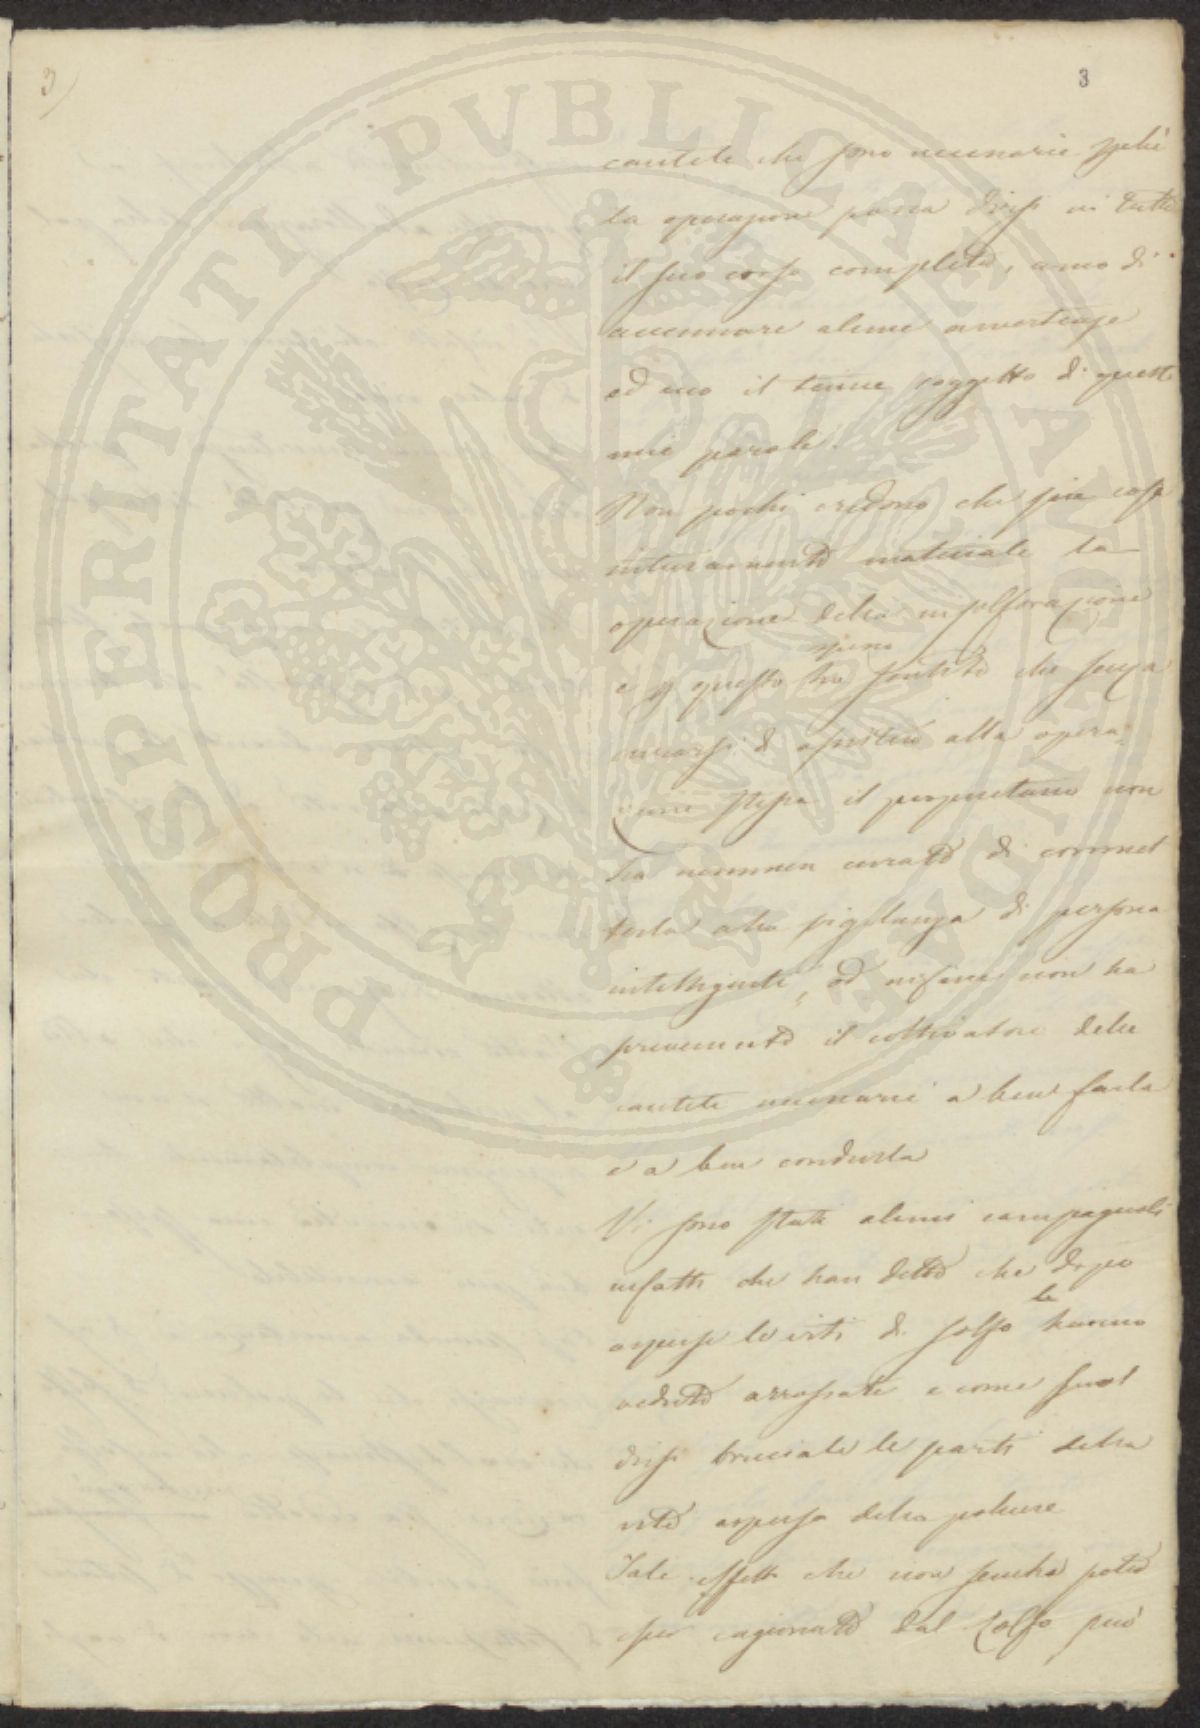 3)
3
cautele che sono necessarie pchè
la operazione possa dirsi in tutto
il suo corso completa, amo di
accennare alcune avvertenze
ed ecco il tenue soggetto di queste
mie parole.
Non pochi credono che sia cosa
interamente materiale la
operazione della insolforazione
e p questo ha sentito che senza
alla opera-
zione stessa il proprietario non
ha nemmen curato di commet
terla alla vigilanza di persona
intelligente, od infine non ha
prevenuto il coltivatore delle
cautele necessarie a ben farla
e a ben condurla
Vi sono stati alcuni campagnoli
infatti che han detto che dopo
asperse le viti di solfo le hanno
vedute arrossate e come suol
dirsi bruciate le parti della
vite aspersa della polvere
Tale effetto che non sembra potesse
esser cagionato dal Zolfo può
PROSPERITATI PVBLICAE AVGENDAE